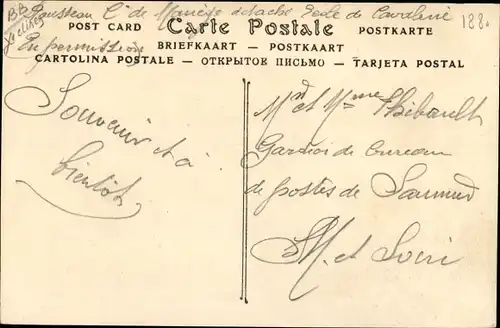 BB
Rousseau C^t de Manège détaché Ecole de Cavalerie
188.
en permission
POST CARD Carte Postale POSTKARTE
BRIEFKAART — POSTKAART
CARTOLINA POSTALE — ОТКРЫТОЕ ПИСЬМО — TARJETA POSTAL
Souvenir et à
bientôt
M^r et M^me Thibault
Gardien de bureau
de postes de Saumur
M. et Loire